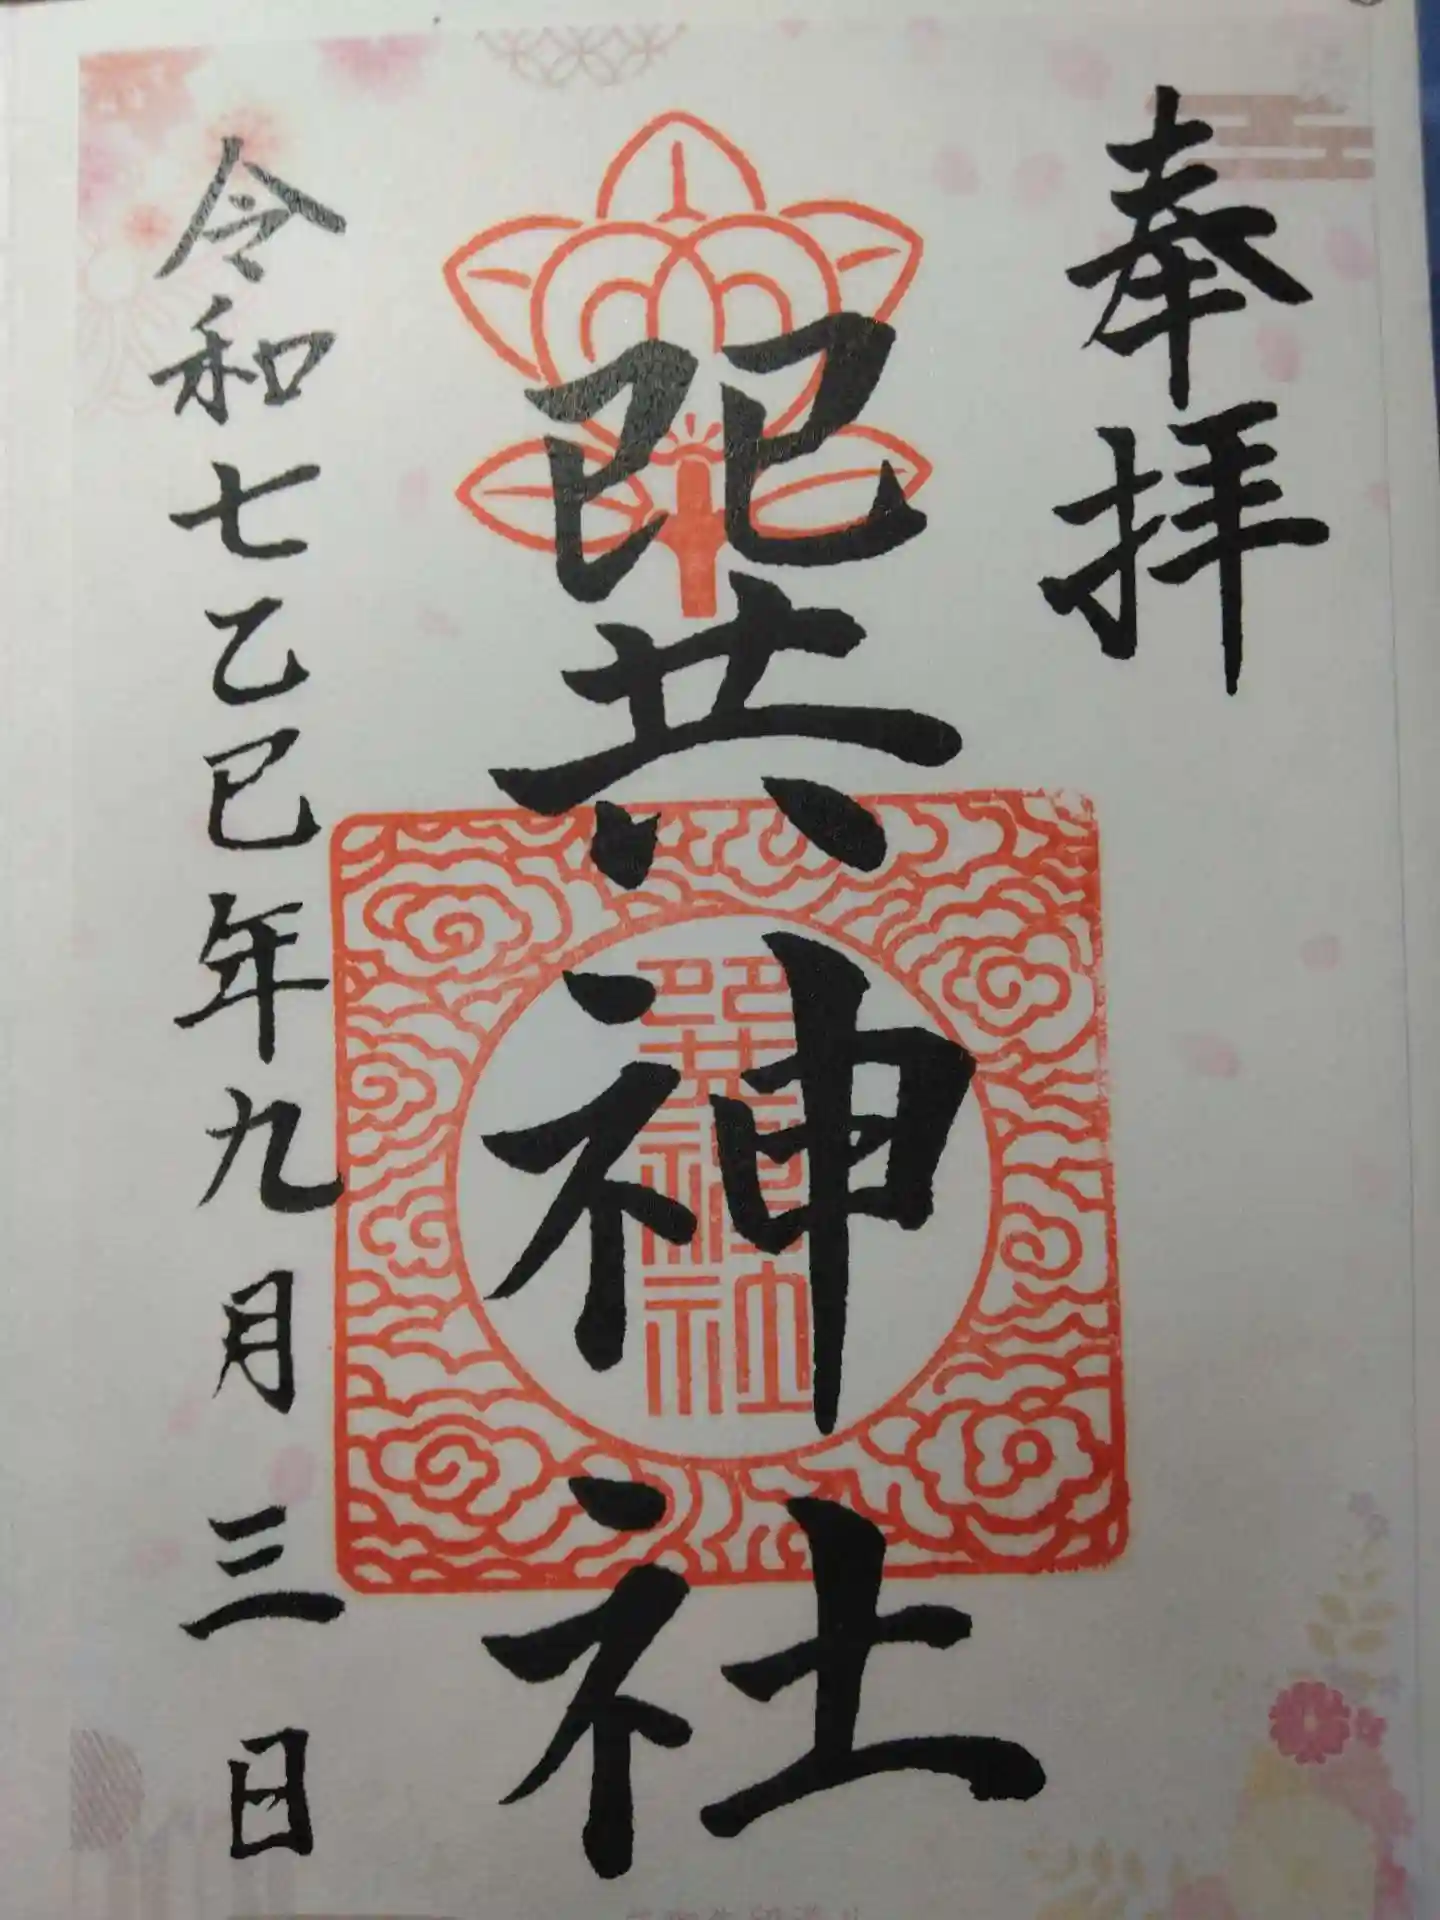 奉拝
巽神社
巽神社
令和七乙巳年九月三日